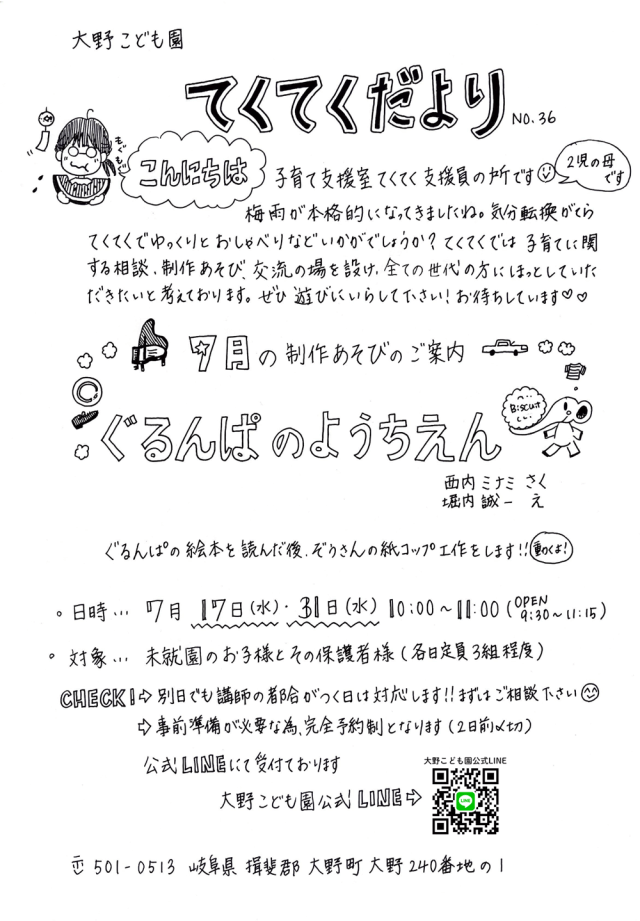 大野こども園
てくてくだより NO.36
もぐもぐ
こんにちは 子育て支援室てくてく支援員の所です
2児の母
です
梅雨が本格的になってきましたね。気分転換がてら
てくてくでゆっくりとおしゃべりなどいかがでしょうか?てくてくでは子育てに関
する相談、制作あそび、交流の場を設け、全ての世代の方にほっとしていた
だきたいと考えております。ぜひ遊びにいらして下さい!お待ちしています♡♡
7月の制作あそびのご案内
ぐるんぱのようちえん
Biscuit
西内ミナミ さく
堀内誠一 え
ぐるんぱの絵本を読んだ後、ぞうさんの紙コップ工作をします!! 動くよ!
日時… 7月 17日(水)・31日(水) 10:00~11:00(OPEN 9:30~11:15)
対象… 未就園のお子様とその保護者様(各日定員3組程度)
CHECK!⇨別日でも講師の都合がつく日は対応します!!まずはご相談下さい
⇨事前準備が必要な為、完全予約制となります(2日前〆切)
公式LINEにて受付ております
大野こども園公式LINE
大野こども園公式LINE⇨
LINE
〒501-0513 岐阜県 揖斐郡 大野町 大野240番地の1